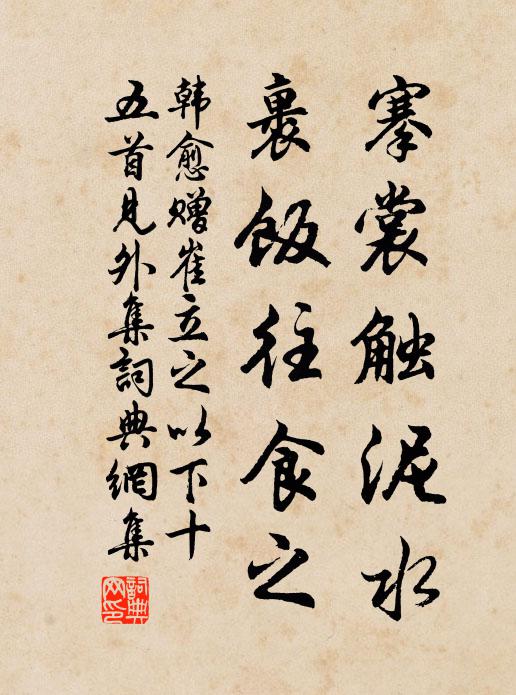 搴裳触泥水
裹飯往食之
韩愈赠崔立之以下十
五首見外集詞典網集
詞典网印